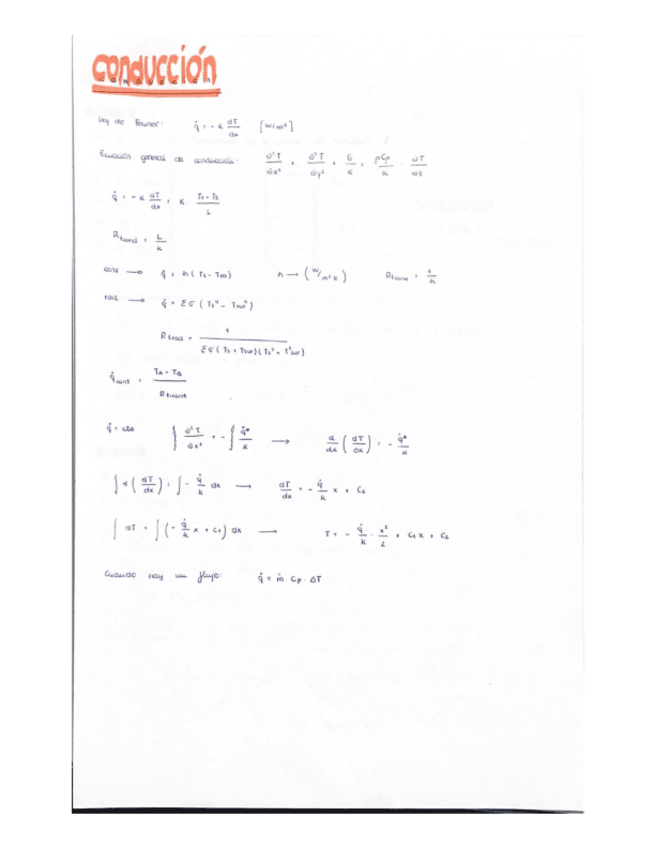 conducción
Ley de Fourier: q̇ = - K dT/dx [W/m²]
Ecuación general de conducción: ∂²T/∂x² + ∂²T/∂y² + G/K = ρCp/K · ∂T/∂t
q̇ = - K dT/dx = K (T₁ - T₂)/L
R_tcond = L/K
conv → q̇ = h (Ts - T∞) h → (W/m²K) R_tconv = 1/h
rad → q̇ = Eσ (Ts⁴ - Tsur⁴)
R_trad = 1/(Eσ (Ts + Tsur)(Ts² + T²sur))
= (TA - TB)/
q̇ = cte ∫ ∂²T/∂x² = - ∫ q̇/K → d/dx (dT/dx) = - q̇/K
∫ d (dT/dx) = ∫ - q̇/K dx → dT/dx = - q̇/K x + C₁
∫ dT = ∫ (- q̇/K x + C₁) dx → T = - q̇/K · x²/2 + C₁ x + C₂
Cuando hay un flujo: q̇ = ṁ · Cp · ΔT